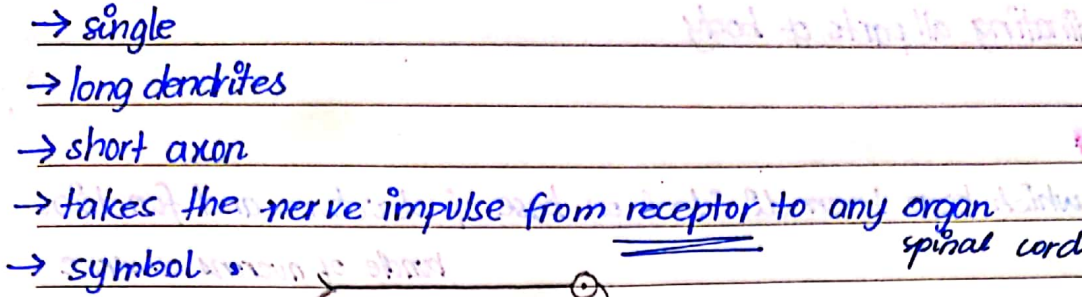 → single
→ long dendrites
→ short axon
→ takes the nerve impulse from receptor to any organ
spinal cord
→ symbol